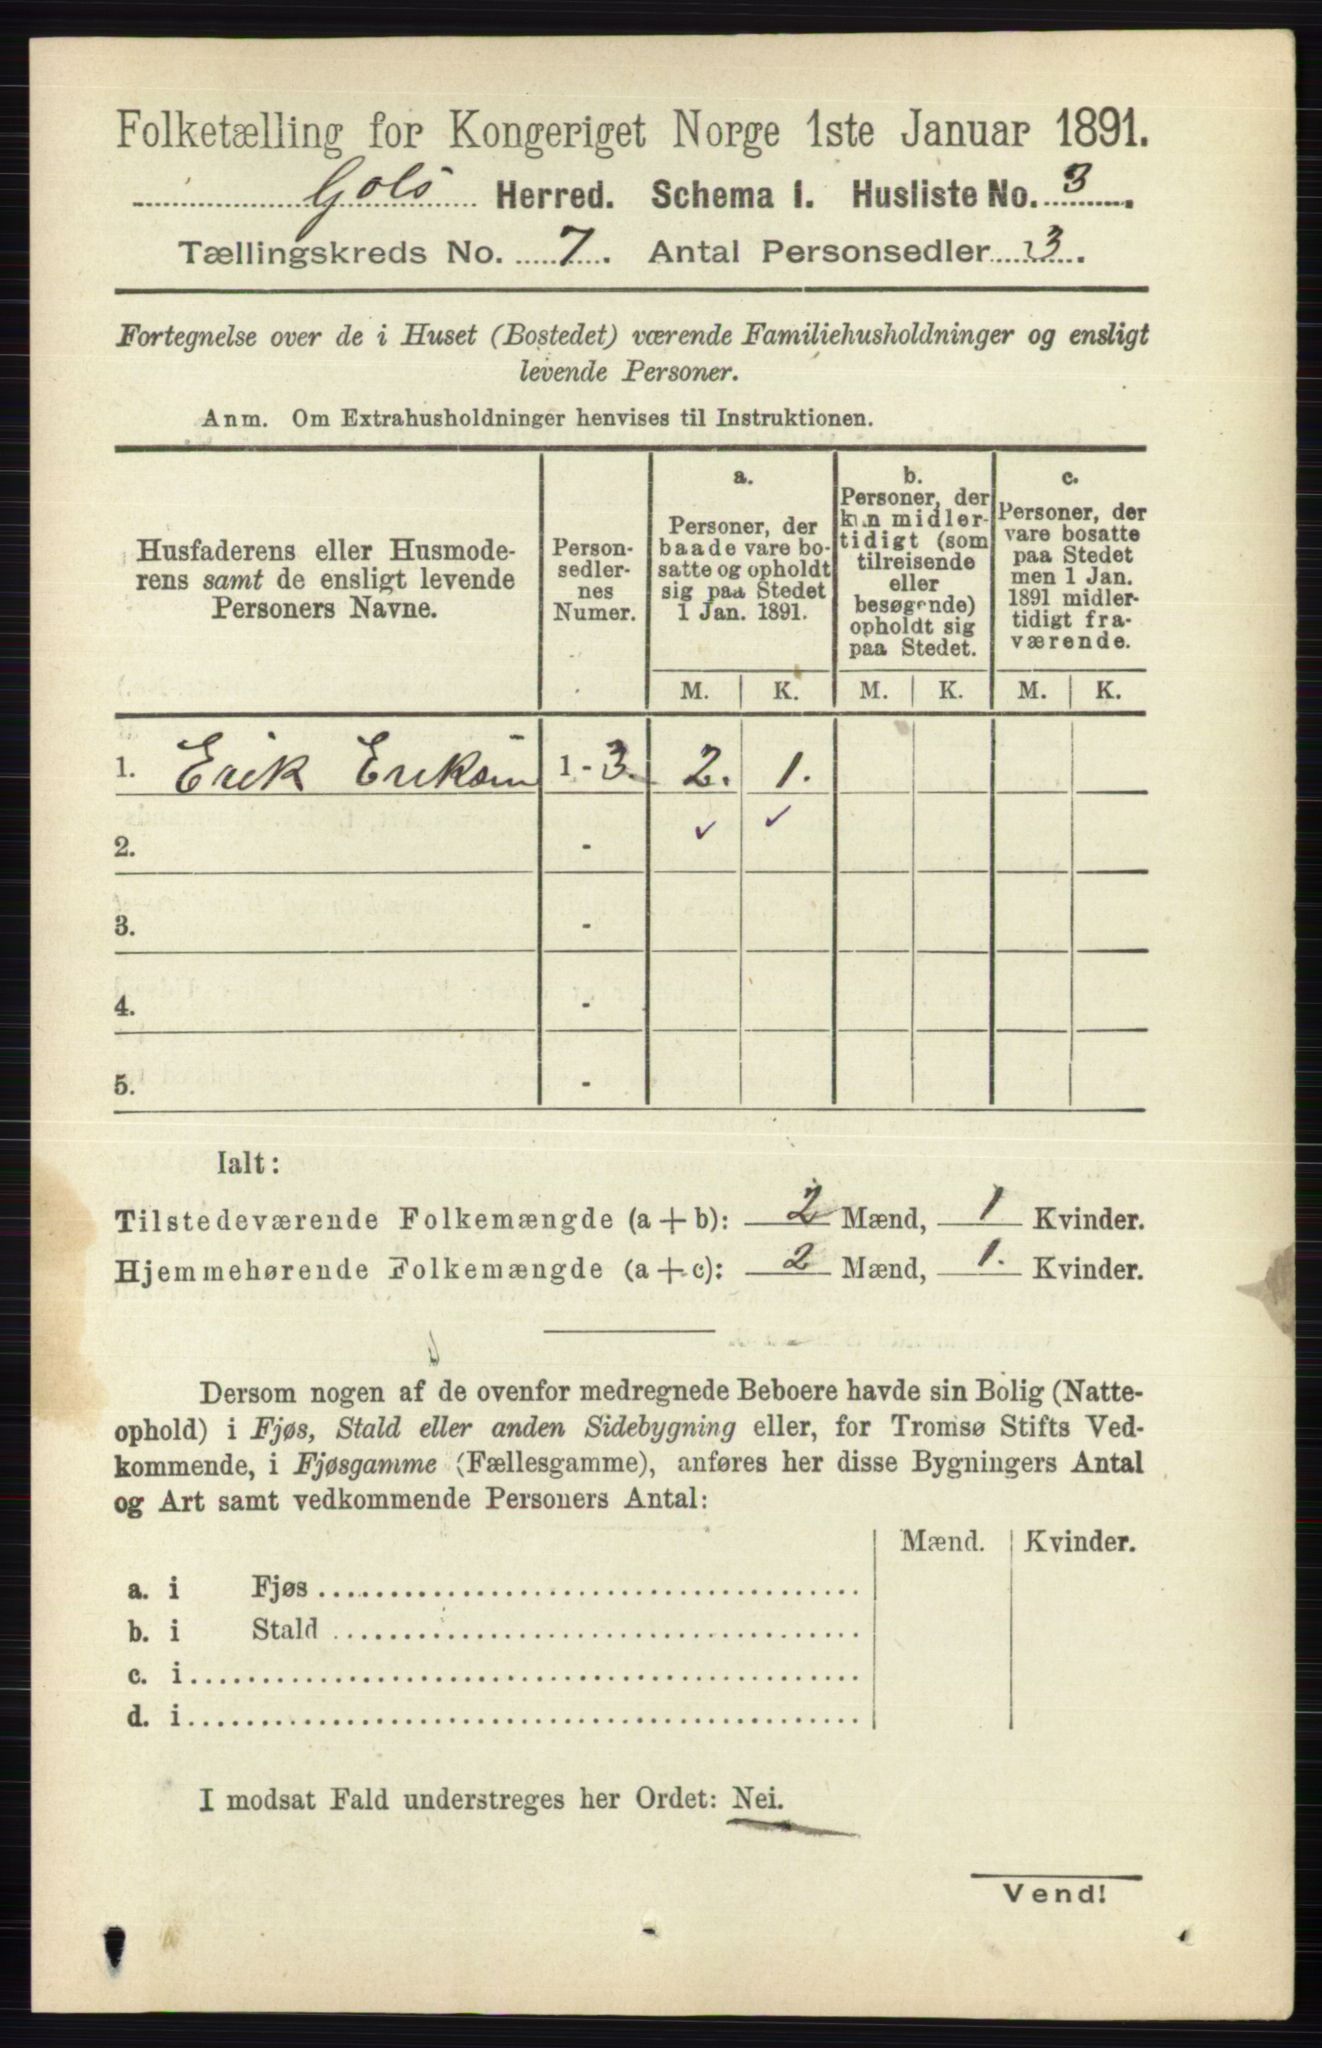 Folketælling for Kongeriget Norge 1ste Januar 1891.
Gols Herred. Schema I. Husliste No. 3.
Tællingskreds No. 7. Antal Personsedler 3.
Fortegnelse over de i Huset (Bostedet) værende Familiehusholdninger og ensligt
levende Personer.
Anm. Om Extrahusholdninger henvises til Instruktionen.
Husfaderens eller Husmode-
rens samt de ensligt levende
Personers Navne.
Person-
sedler-
nes
Numer.
a.
Personer, der
baade vare bo-
satte og opholdt
sig paa Stedet
1 Jan. 1891.
b.
Personer, der
kun midler-
tidigt (som
tilreisende
eller
besøgende)
opholdt sig
paa Stedet.
c.
Personer, der
vare bosatte
paa Stedet
men 1 Jan.
1891 midler-
tidigt fra-
værende.
M. K. M. K. M. K.
1. Erik Eriksen 1-3. 2. 1.
2. - ✓ ✓
3. -
4. -
5. -
Ialt:
Tilstedeværende Folkemængde (a+b): 2 Mænd, 1 Kvinder.
Hjemmehørende Folkemængde (a+c): 2 Mænd, 1. Kvinder.
Dersom nogen af de ovenfor medregnede Beboere havde sin Bolig (Natte-
ophold) i Fjøs, Stald eller anden Sidebygning eller, for Tromsø Stifts Ved-
kommende, i Fjøsgamme (Fællesgamme), anføres her disse Bygningers Antal
og Art samt vedkommende Personers Antal:
Mænd. Kvinder.
a. i Fjøs
b. i Stald
c. i
d. i
I modsat Fald understreges her Ordet: Nei.
Vend!